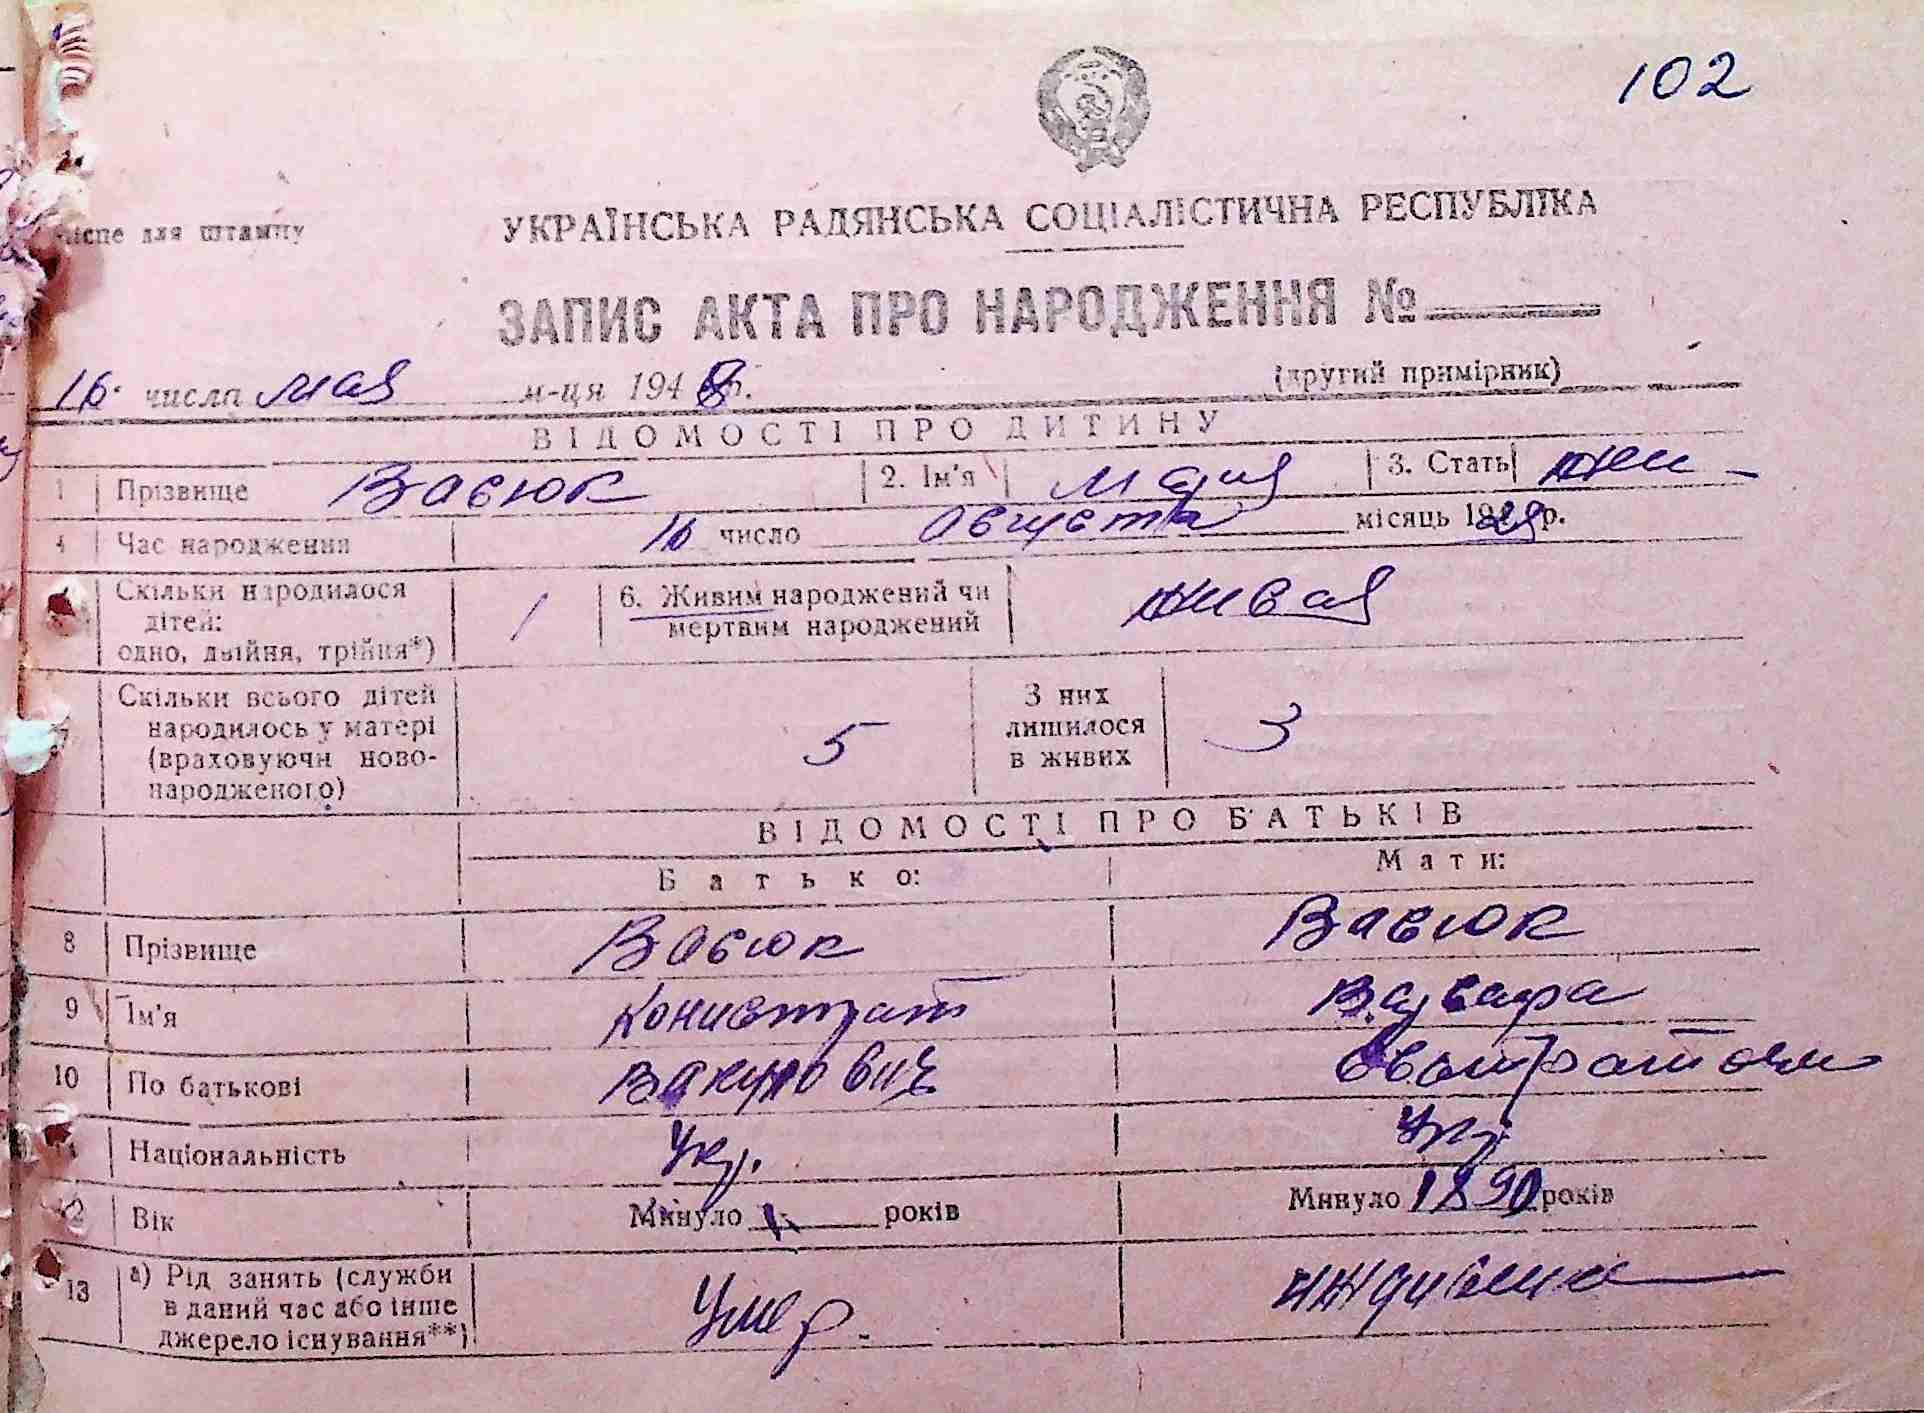 102
місце для штампу
УКРАЇНСЬКА РАДЯНСЬКА СОЦІАЛІСТИЧНА РЕСПУБЛІКА
ЗАПИС АКТА ПРО НАРОДЖЕННЯ №
16 числа мая м-ця 1948 р. (другий примірник)
ВІДОМОСТІ ПРО ДИТИНУ
1 Прізвище Васюк 2. Ім'я Мария 3. Стать жен
4 Час народження 16 число Августа місяць 1928 р.
Скільки народилося дітей: одно, двійня, трійня*) 1 6. Живим народжений чи мертвим народжений живая
7 Скільки всього дітей народилось у матері (враховуючи новонародженого) 5 З них лишилося в живих 3
ВІДОМОСТІ ПРО БАТЬКІВ
Батько: Мати:
8 Прізвище Васюк Васюк
9 Ім'я Варвара
10 По батькові Вакулович
11 Національність Укр. Укр
12 Вік Минуло років Минуло 1890 років
13 а) Рід занять (служби в даний час або інше джерело існування**) Умер.